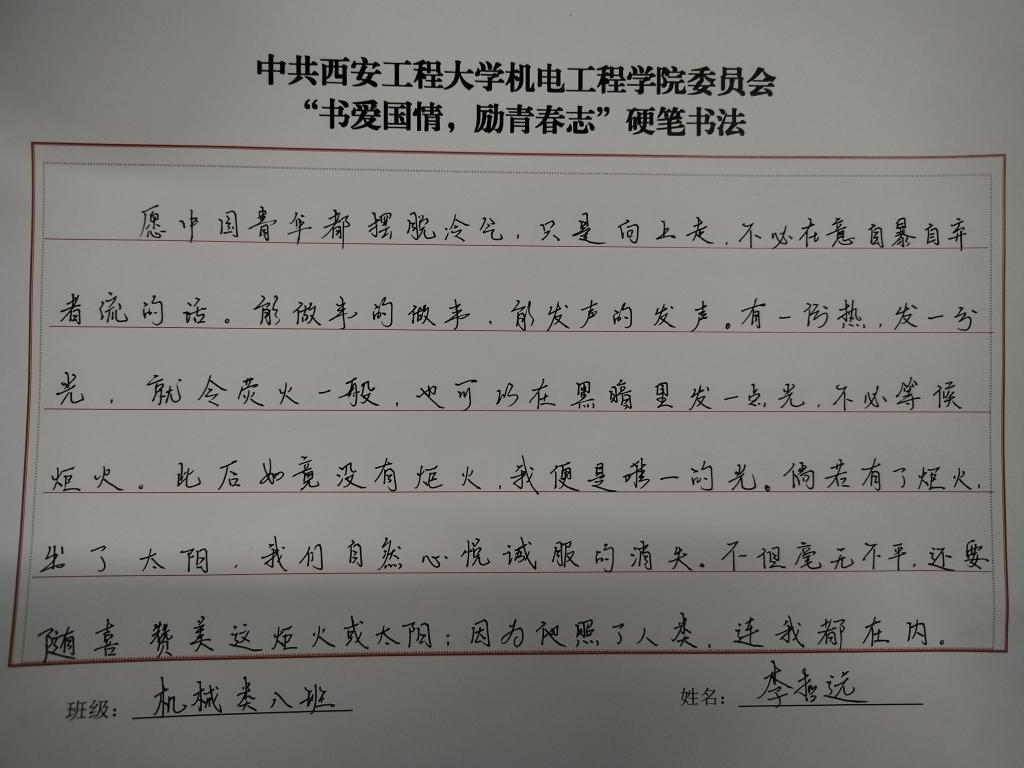 中共西安工程大学机电工程学院委员会
“书爱国情，励青春志”硬笔书法
愿中国青年都摆脱冷气，只是向上走，不必在意自暴自弃
者流的话。能做事的做事，能发声的发声。有一份热，发一分
光，就令萤火一般，也可以在黑暗里发一点光，不必等候
炬火。此后如竟没有炬火，我便是唯一的光。倘若有了炬火，
出了太阳，我们自然心悦诚服的消失。不但毫无不平，还要
随喜赞美这炬火或太阳；因为他照了人类，连我都在内。
班级：机械类八班
姓名：李哲远